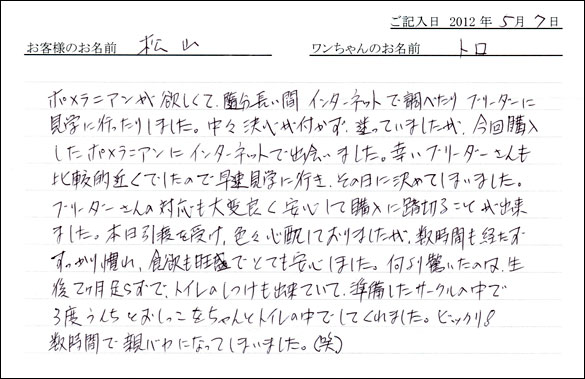 ご記入日 2012 年 5月 7日
お客様のお名前 松山 ワンちゃんのお名前 トロ
ポメラニアンが欲しくて、随分長い間インターネットで調べたりブリーダーに
見学に行ったりしました。中々決心が付かず、迷っていましたが、今回購入
したポメラニアンにインターネットで出会いました。幸いブリーダーさんも
比較的近くでしたので早速見学に行き、その日に決めてしまいました。
ブリーダーさんの対応も大変良く安心して購入に踏切ることが出来
ました。本日引渡を受け、色々心配しておりましたが、数時間も経たず
すっかり慣れ、食欲も旺盛でとても安心しました。何より驚いたのは、生
後2ヶ月足らずで、トイレのしつけも出来ていて、準備したサークルの中で
3度うんちとおしっこをちゃんとトイレの中でしてくれました。ビックリ!!
数時間で親バカになってしまいました。(笑)